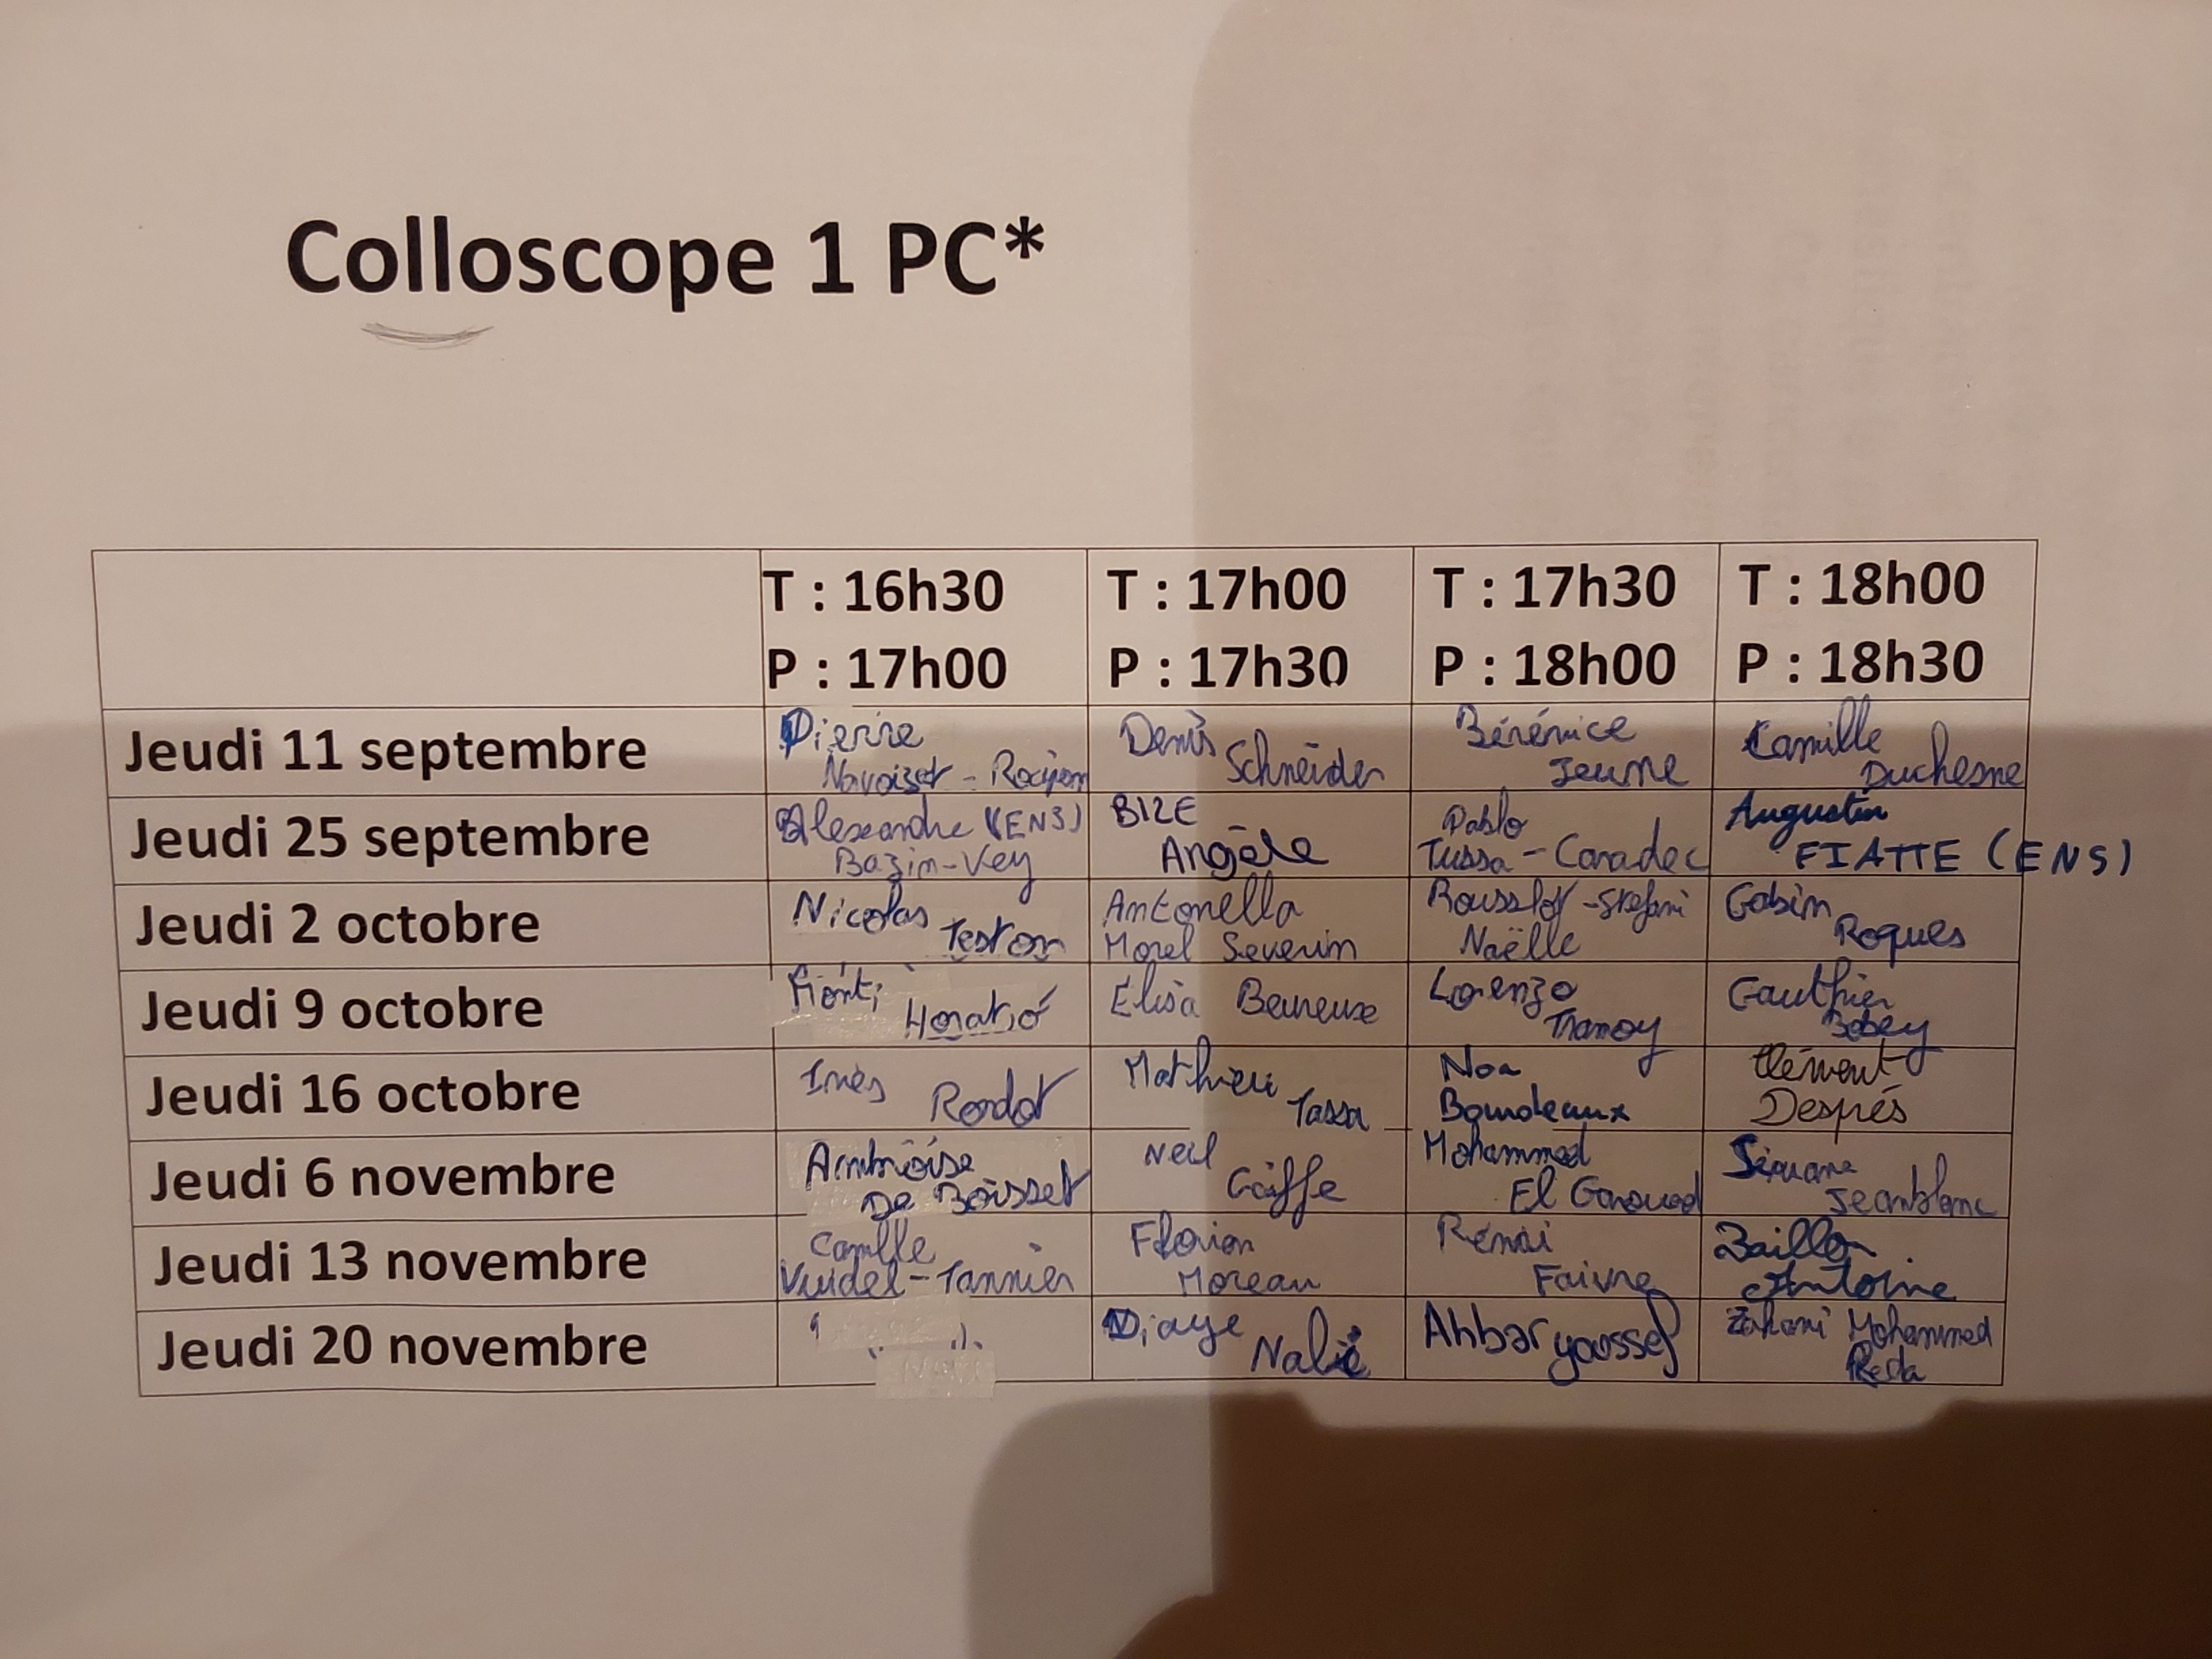 Colloscope 1 PC*
T : 16h30 T : 17h00 T : 17h30 T : 18h00
P : 17h00 P : 17h30 P : 18h00 P : 18h30
Jeudi 11 septembre Pierre Denis Schneider Bérénice Jeune Camille Duchesne
Jeudi 25 septembre Alexandre (ENS) Bazin-Vey BIZE Angèle Pablo Tussa-Caradec Augustin FIATTE (ENS)
Jeudi 2 octobre Nicolas Teston Antonella Morel Severin Rousslot-Stefani Naëlle Gabin Roques
Jeudi 9 octobre Monti Horatio Elisa Lorenzo Tramoy Gauthier Bobey
Jeudi 16 octobre Inès Rondot Mathieu Tassa Noa Bourdeaux Clément Després
Jeudi 6 novembre Ambroise De Boisset Neil Gaiffe Mohammed El Garouad Jeanblanc
Jeudi 13 novembre Camille Vuidel-Tannier Florian Moreau Rémi Faivre Baillon Antoine
Jeudi 20 novembre Diaye Ahbar youssef Mohammed Reda